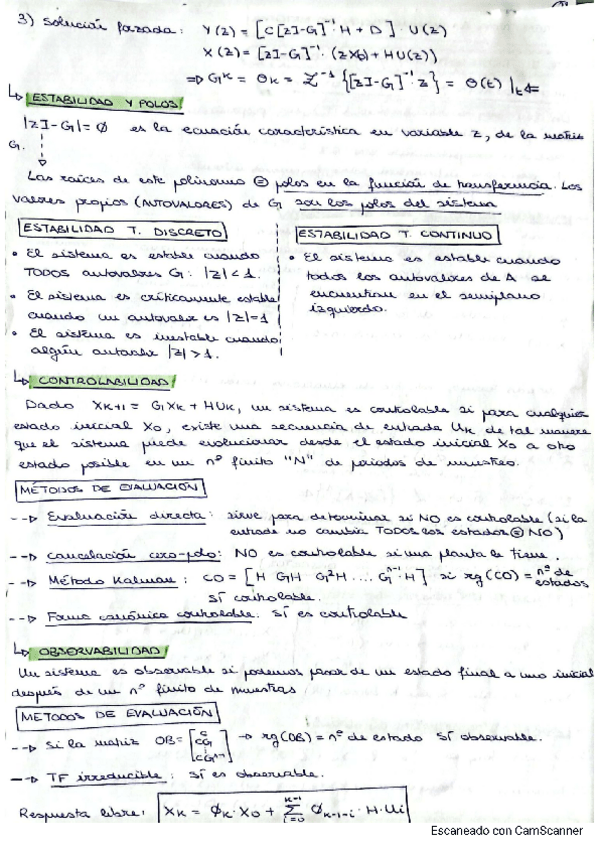 3) Solución forzada: Y(z) = [C[zI-G]⁻¹·H + D]·U(z)
X(z) = [zI-G]⁻¹·(zX₀ + HU(z))
=> Gᴷ = Φₖ = Z⁻¹{[zI-G]⁻¹·z} = Φ(t)|t=
↳ ESTABILIDAD Y POLOS
|zI-G| = 0 es la ecuación característica en variable z, de la matriz
G.
Las raíces de este polinomio ⊜ polos en la función de transferencia. Los
valores propios (AUTOVALORES) de G son los polos del sistema
ESTABILIDAD T. DISCRETO
• El sistema es estable cuando
TODOS autovalores G: |z| < 1.
• El sistema es críticamente estable
cuando un autovalor es |z| = 1
• El sistema es inestable cuando
algún autovalor |z| > 1.
ESTABILIDAD T. CONTINUO
• El sistema es estable cuando
todos los autovalores de A se
encuentran en el semiplano
izquierdo.
↳ CONTROLABILIDAD
Dado Xₖ₊₁ = GXₖ + HUₖ, un sistema es controlable si para cualquier
estado inicial X₀, existe una secuencia de entrada Uₖ de tal manera
que el sistema puede evolucionar desde el estado inicial X₀ a otro
estado posible en un nº finito "N" de periodos de muestreo.
MÉTODOS DE EVALUACIÓN
--> Evaluación directa: sirve para determinar si NO es controlable (si la
entrada no cambia TODOS los estados ⊜ NO)
--> Cancelación cero-polo: NO es controlable si una planta le tiene.
--> Método Kalman: CO = [H GH G²H ... Gⁿ⁻¹·H] si rg(CO) = nº de
estados
SÍ controlable.
--> Forma canónica controlable. SÍ es controlable
↳ OBSERVABILIDAD
Un sistema es observable si podemos pasar de un estado final a uno inicial
después de un nº finito de muestras
MÉTODOS DE EVALUACIÓN
--> Si la matriz OB = [C CG ⋮ CGⁿ⁻¹] → rg(OB) = nº de estado SÍ observable.
--> TF irreducible: SÍ es observable.
Respuesta libre: Xₖ = Φₖ·X₀ + Σᵢ₌₀ᴷ⁻¹ Φₖ₋₁₋ᵢ·H·Uᵢ
Escaneado con CamScanner